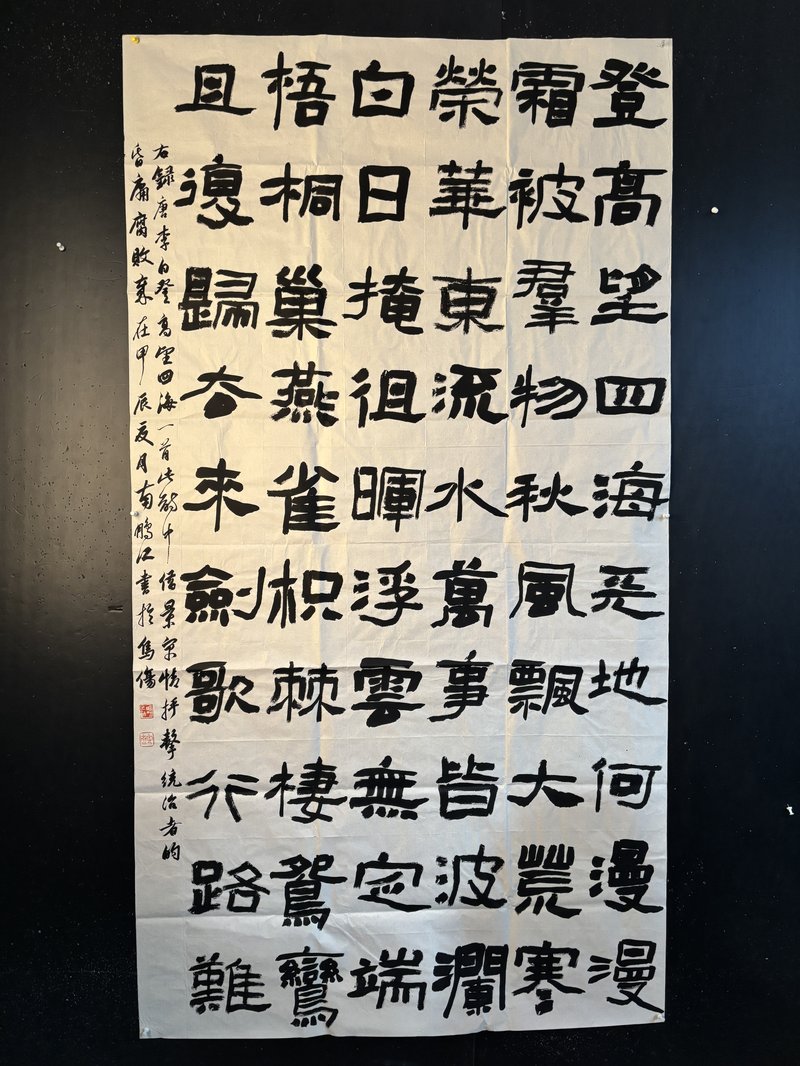 登高望四海天地何漫漫
霜被羣物秋風飄大荒寒
榮華東流水萬事皆波瀾
白日掩徂暉浮雲無定端
梧桐巢燕雀枳棘棲鴛鸞
且復歸去來劍歌行路難
右錄唐李白登高望四海一首此詩中借景寄情抨擊統治者的
昏庸腐敗 在甲辰夏月南鵬江書於烏傷